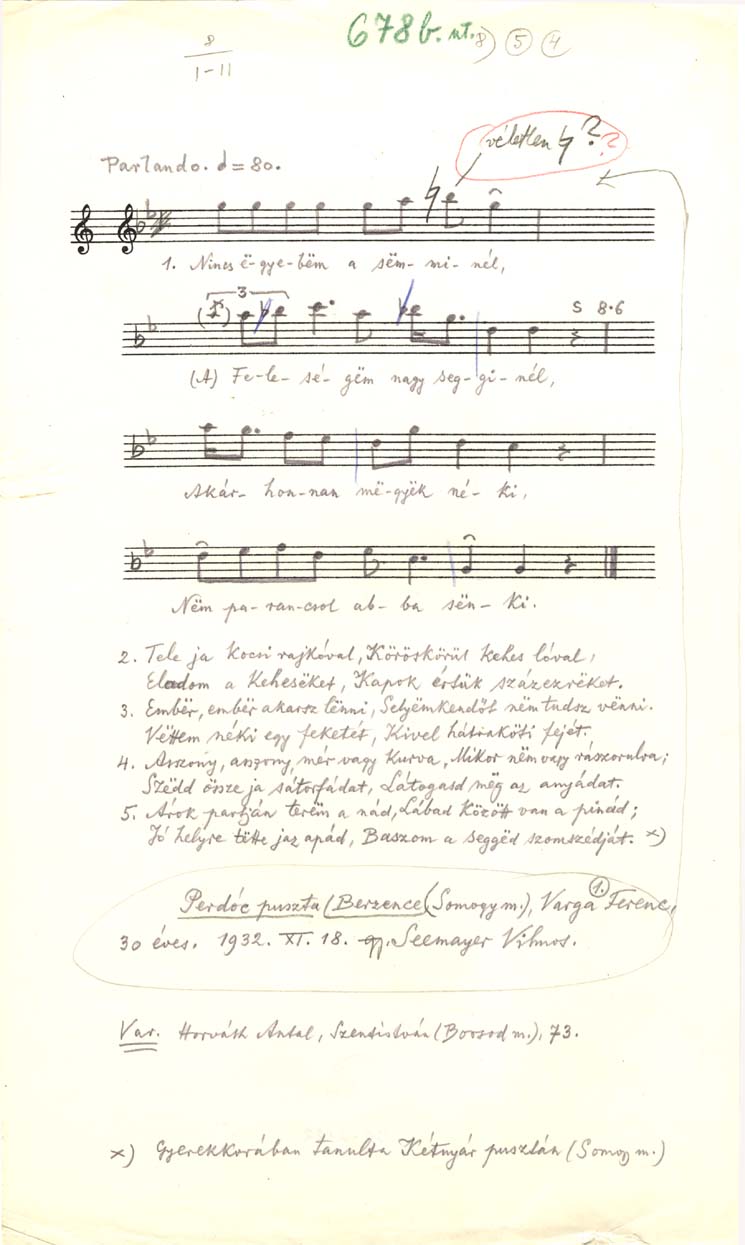 678b. nt. 8) 5 4
8
1-11
véletlen ♮ ? ?
Parlando. d = 80.
1. Nincs ë-gye-bëm a sëm-mi-nél,
3
S 8·6
(A) Fe-le-sé-gëm nagy seg-gi-nél,
Akár-hon-nan më-gyëk né-ki,
Nëm pa-ran-csol ab-ba sën-ki.
2. Tele ja kocsi rajkóval, Köröskörül kehes lóval,
Eladom a kehesëket, Kapok értük százezrëket.
3. Embër, embër akarsz lënni, Selyëmkendőt nëm tudsz vënni.
Vëttem néki egy feketét, Kivel hátrakösti fejét.
4. Asszony, asszony, mér vagy kurva, Mikor nëm vagy rászorulva;
Szëdd össze ja sátorfádat, Látogasd mëg az anyádat.
5. Árok partján terëm a nád, Lábad között van a pinád;
Jó helyre tëtte jaz apád, Baszom a seggëd szomszédját. x)
Perdóc puszta (Berzence (Somogy m.), Varga 1. Ferenc,
30 éves. 1932. XI. 18. gy. Seemayer Vilmos.
Var. Horváth Antal, Szentistván (Borsod m.), 73.
x) Gyerekkorában tanulta Kétnyár pusztán (Somogy m.)